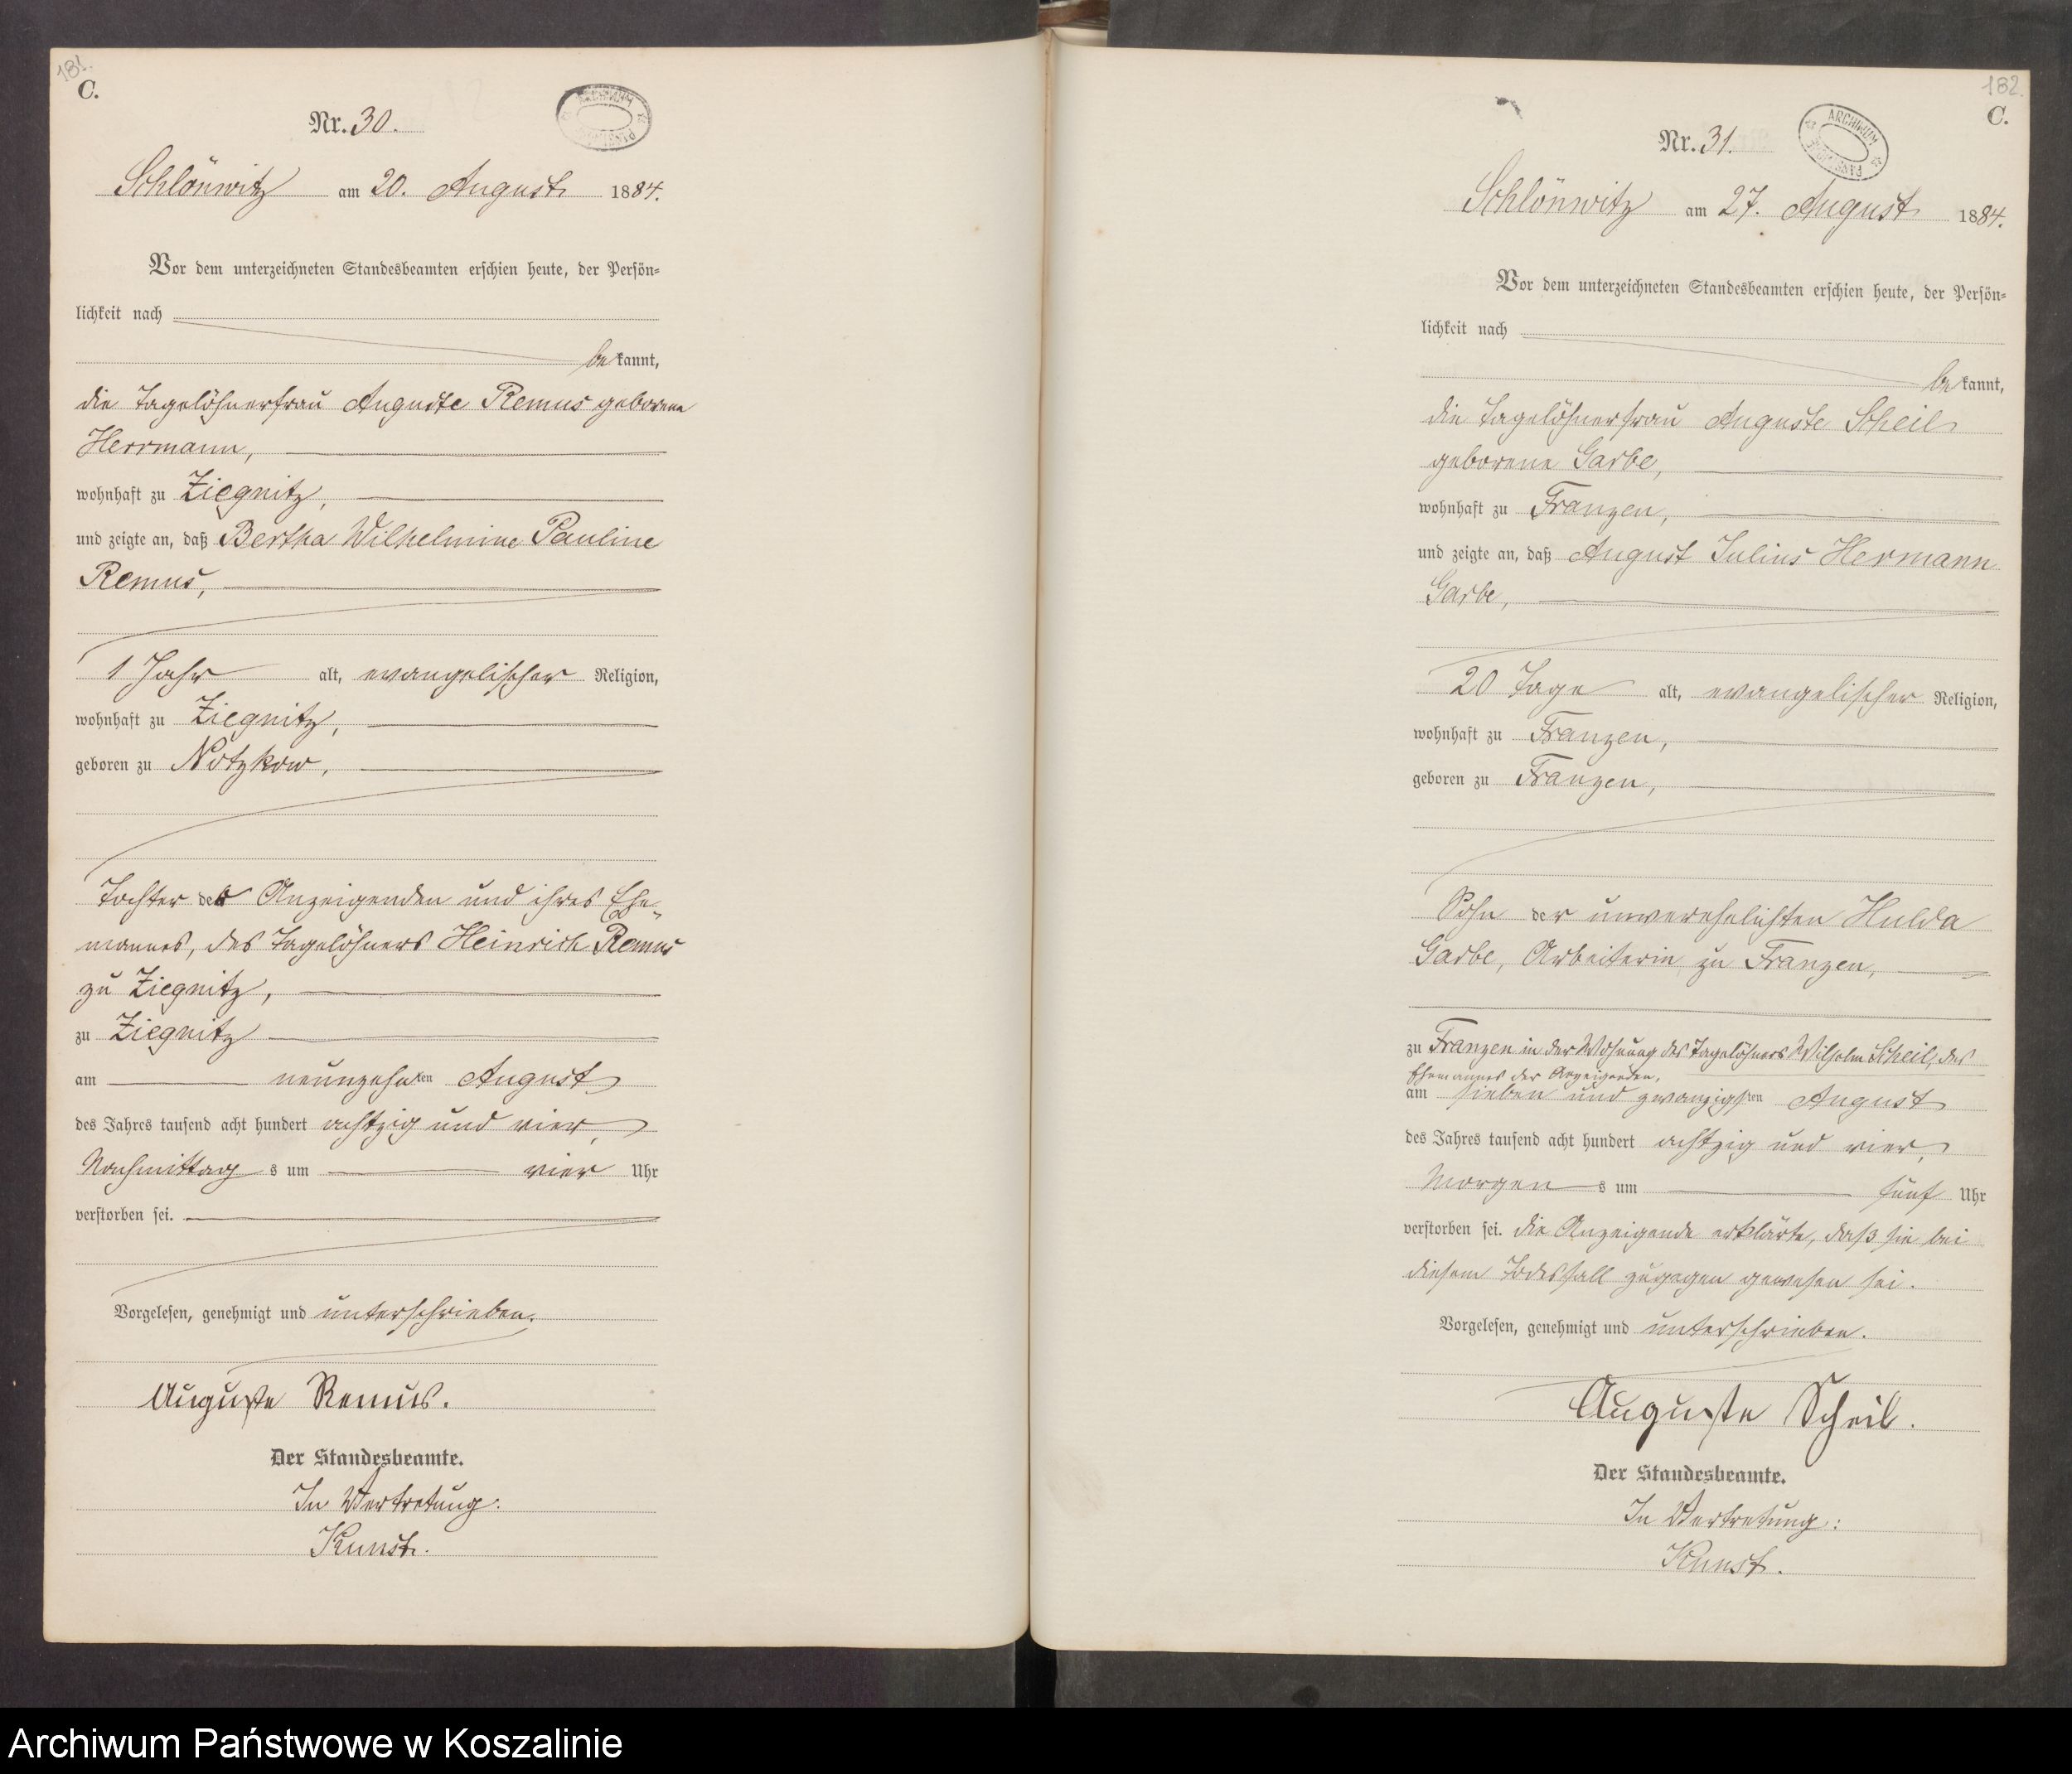 181.
C.
Nr. 30.
ARCHIWUM PAŃSTWOWE
Schlönwitz am 20. August 1884.
Vor dem unterzeichneten Standesbeamten erschien heute, der Persön=
lichkeit nach
bekannt,
die Tagelöhnerfrau Auguste Remus geborene
Herrmann,
wohnhaft zu Ziegnitz,
und zeigte an, daß Bertha Wilhelmine Pauline
Remus,
1 Jahr alt, evangelischer Religion,
wohnhaft zu Ziegnitz,
geboren zu Notzkow,
Tochter der Anzeigenden und ihres Ehe=
mannes, des Tagelöhners Heinrich Remus
zu Ziegnitz,
zu Ziegnitz
am neunzehnten August
des Jahres tausend acht hundert achtzig und vier,
Nachmittags um vier Uhr
verstorben sei.
Vorgelesen, genehmigt und unterschrieben.
Auguste Remus.
Der Standesbeamte.
In Vertretung:
Kunst.
182.
C.
Nr. 31.
ARCHIWUM PAŃSTWOWE
Schlönwitz am 27. August 1884.
Vor dem unterzeichneten Standesbeamten erschien heute, der Persön=
lichkeit nach
bekannt,
die Tagelöhnerfrau Auguste Scheil
geborene Garbe,
wohnhaft zu Franzen,
und zeigte an, daß August Julius Hermann
Garbe,
20 Tage alt, evangelischer Religion,
wohnhaft zu Franzen,
geboren zu Franzen,
Sohn der unverehelichten Hulda
Garbe, Arbeiterin zu Franzen,
zu Franzen in der Wohnung des Tagelöhners Wilhelm Scheil, des
Ehemannes der Anzeigenden,
am sieben und zwanzigsten August
des Jahres tausend acht hundert achtzig und vier,
Morgens um fünf Uhr
verstorben sei. die Anzeigende erklärte, daß sie bei
diesem Todesfall zugegen gewesen sei.
Vorgelesen, genehmigt und unterschrieben.
Auguste Scheil.
Der Standesbeamte.
In Vertretung:
Kunst.
Archiwum Państwowe w Koszalinie